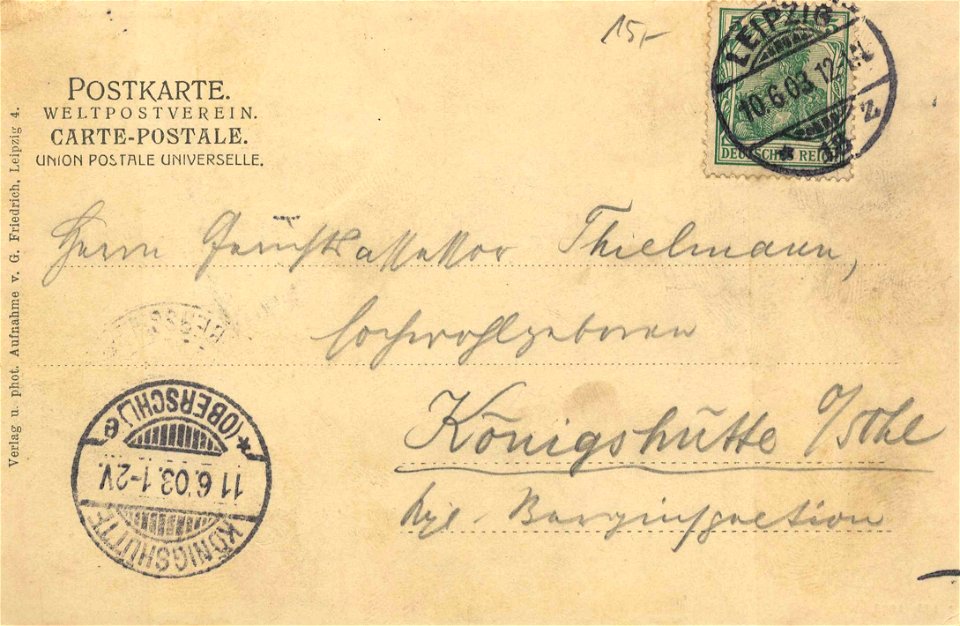 15,-
POSTKARTE.
WELTPOSTVEREIN.
CARTE-POSTALE.
UNION POSTALE UNIVERSELLE.
Verlag u. phot. Aufnahme v. G. Friedrich, Leipzig 4.
LEIPZIG
10.6.03
* 13
DEUTSCHES REICH
Herrn Gerichtsassessor Thielmann,
Hochwohlgeboren
Königshütte O/Schl
Kgl. Berginspection
KÖNIGSHÜTTE
11.6.03.1-2V.
*(OBERSCHL.)e